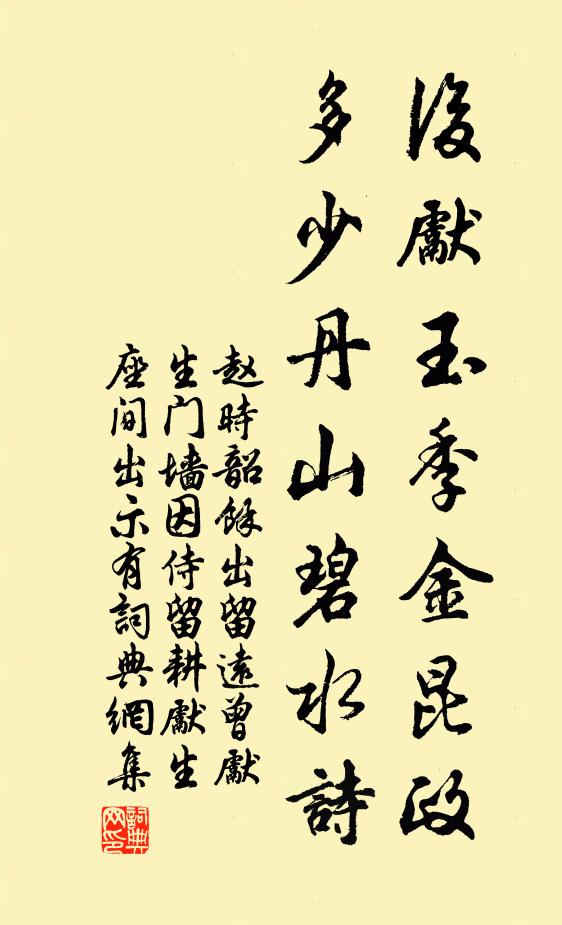 後獻玉季金昆政
多少丹山碧水詩
赵時韶餘出留遠曾獻
生门墙因侍留耕獻生
座间出示有詞典網集
詞典网印